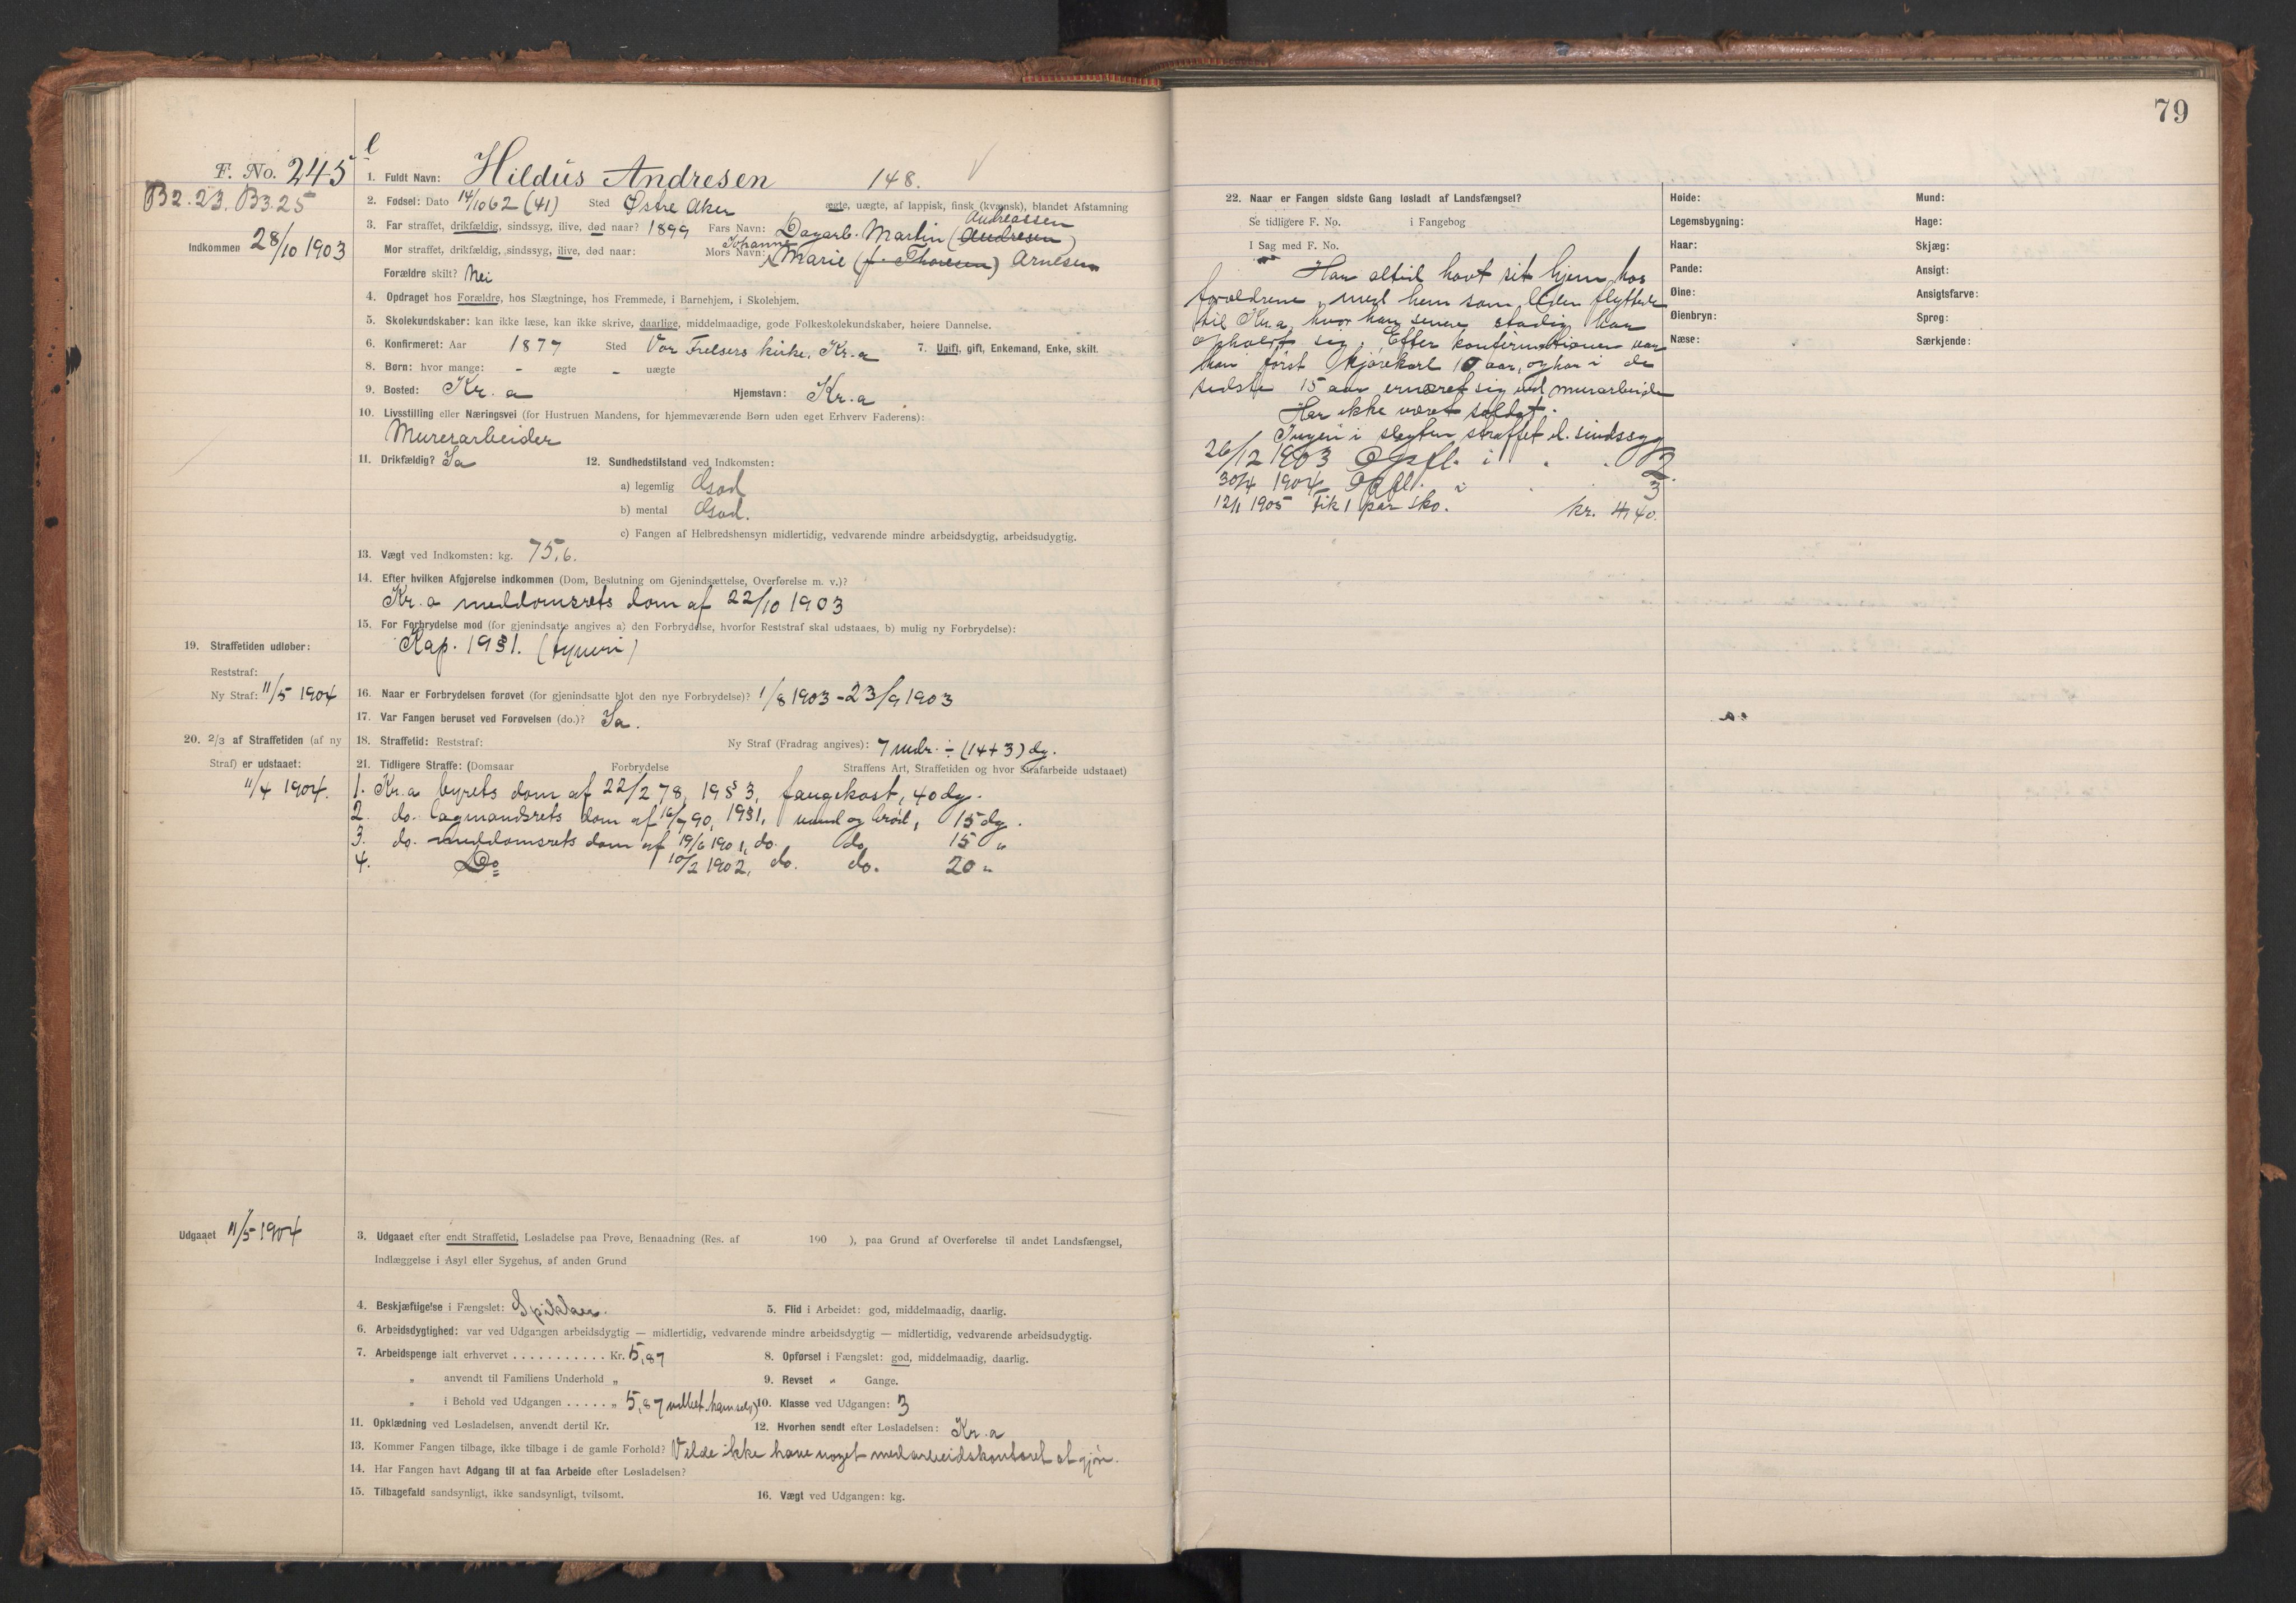 79
l
F. No. 245 1. Fuldt Navn: Hildus Andresen 148. V
B2.23. B3.25
2. Fødsel: Dato 14/10 62 (41) Sted Østre Aker ægte, uægte, af lappisk, finsk (kvænsk), blandet Afstamning
Andreassen
Indkommen 28/10 1903
3. Far straffet, drikfældig, sindssyg, ilive, død naar? 1899 Fars Navn: Dagarb. Martin (Andresen)
Johanne
Mor straffet, drikfældig, sindssyg, ilive, død naar: Mors Navn: Marie (f. Thoresen) Arnesen
Forældre skilt? Nei
4. Opdraget hos Forældre, hos Slægtninge, hos Fremmede, i Barnehjem, i Skolehjem.
5. Skolekundskaber: kan ikke læse, kan ikke skrive, daarlige, middelmaadige, gode Folkeskolekundskaber, høiere Dannelse.
6. Konfirmeret: Aar 1877 Sted Vor Frelsers kirke, Kr.a 7. Ugift, gift, Enkemand, Enke, skilt.
8. Børn: hvor mange: - ægte - uægte
9. Bosted: Kr. a Hjemstavn: Kr.a.
10. Livsstilling eller Næringsvei (for Hustruen Mandens, for hjemmeværende Børn uden eget Erhverv Faderens):
Murerarbeider
11. Drikfældig? Ja 12. Sundhedstilstand ved Indkomsten:
a) legemlig God
b) mental God.
c) Fangen af Helbredshensyn midlertidig, vedvarende mindre arbeidsdygtig, arbeidsudygtig.
13. Vægt ved Indkomsten: kg. 75,6.
14. Efter hvilken Afgjørelse indkommen (Dom, Beslutning om Gjenindsættelse, Overførelse m. v.)?
Kr.a meddomsrets dom af 22/10 1903
15. For Forbrydelse mod (for gjenindsatte angives a) den Forbrydelse, hvorfor Reststraf skal udstaaes, b) mulig ny Forbrydelse):
Kap. 19§1. (tyveri)
19. Straffetiden udløber:
Reststraf:
Ny Straf: 11/5 1904
16. Naar er Forbrydelsen forøvet (for gjenindsatte blot den nye Forbrydelse)? 1/8 1903 - 23/9 1903
17. Var Fangen beruset ved Forøvelsen (do.)? Ja.
20. 2/3 af Straffetiden (af ny
Straf) er udstaaet:
11/4 1904.
18. Straffetid: Reststraf: Ny Straf (Fradrag angives): 7 mdr. ÷ (14+3) dg.
21. Tidligere Straffe: (Domsaar Forbrydelse Straffens Art, Straffetiden og hvor Strafarbeide udstaaet)
1. Kr.a byrets dom af 22/2 78, 19§3, fangekost, 40 dg.
2. do. lagmandsrets dom af 16/7 90, 19§1, vand og brød, 15 dg.
3. do. meddomsrets dom af 19/6 1901, do. do. 15 "
4. Do 10/2 1902, do. do. 20 "
Udgaaet 11/5 1904
3. Udgaaet efter endt Straffetid, Løsladelse paa Prøve, Benaadning (Res. af 190 ), paa Grund af Overførelse til andet Landsfængsel,
Indlæggelse i Asyl eller Sygehus, af anden Grund
4. Beskjæftigelse i Fængslet: 5. Flid i Arbeidet: god, middelmaadig, daarlig.
6. Arbeidsdygtighed: var ved Udgangen arbeidsdygtig — midlertidig, vedvarende mindre arbeidsdygtig — midlertidig, vedvarende arbeidsudygtig.
7. Arbeidspenge ialt erhvervet ........... Kr. 5,87 8. Opførsel i Fængslet: god, middelmaadig, daarlig.
" anvendt til Familiens Underhold " 9. Revset " Gange.
" i Behold ved Udgangen ..... " 5,87 10. Klasse ved Udgangen: 3
11. Opklædning ved Løsladelsen, anvendt dertil Kr. 12. Hvorhen sendt efter Løsladelsen: Kr.a
13. Kommer Fangen tilbage, ikke tilbage i de gamle Forhold? Vilde ikke have noget med arbeidskontoret at gjør.
14. Har Fangen havt Adgang til at faa Arbeide efter Løsladelsen?
15. Tilbagefald sandsynligt, ikke sandsynligt, tvilsomt. 16. Vægt ved Udgangen: kg.
22. Naar er Fangen sidste Gang løsladt af Landsfængsel?
Se tidligere F. No. i Fangebog
I Sag med F. No.
Har altid havt sit hjem hos
forældrene, med hem som liden flyttede
til Kr.a, hvor han senere stadig har
opholdt sig. Efter konfirmationen var
han først kjørekarl 10 aar, og har i de
sidste 15 aar ernæret sig ved murarbeide
Har ikke været soldat.
Ingen i slegten straffet el. sindssyg
26/12 1903 Opfl. i . . 2.
30/4 1904 Opfl. i . . 3
12/1 1905 Fik 1 par sko. kr. 4,40.
Høide:
Legemsbygning:
Haar:
Pande:
Øine:
Øienbryn:
Næse:
Mund:
Hage:
Skjæg:
Ansigt:
Ansigtsfarve:
Sprog:
Særkjende: